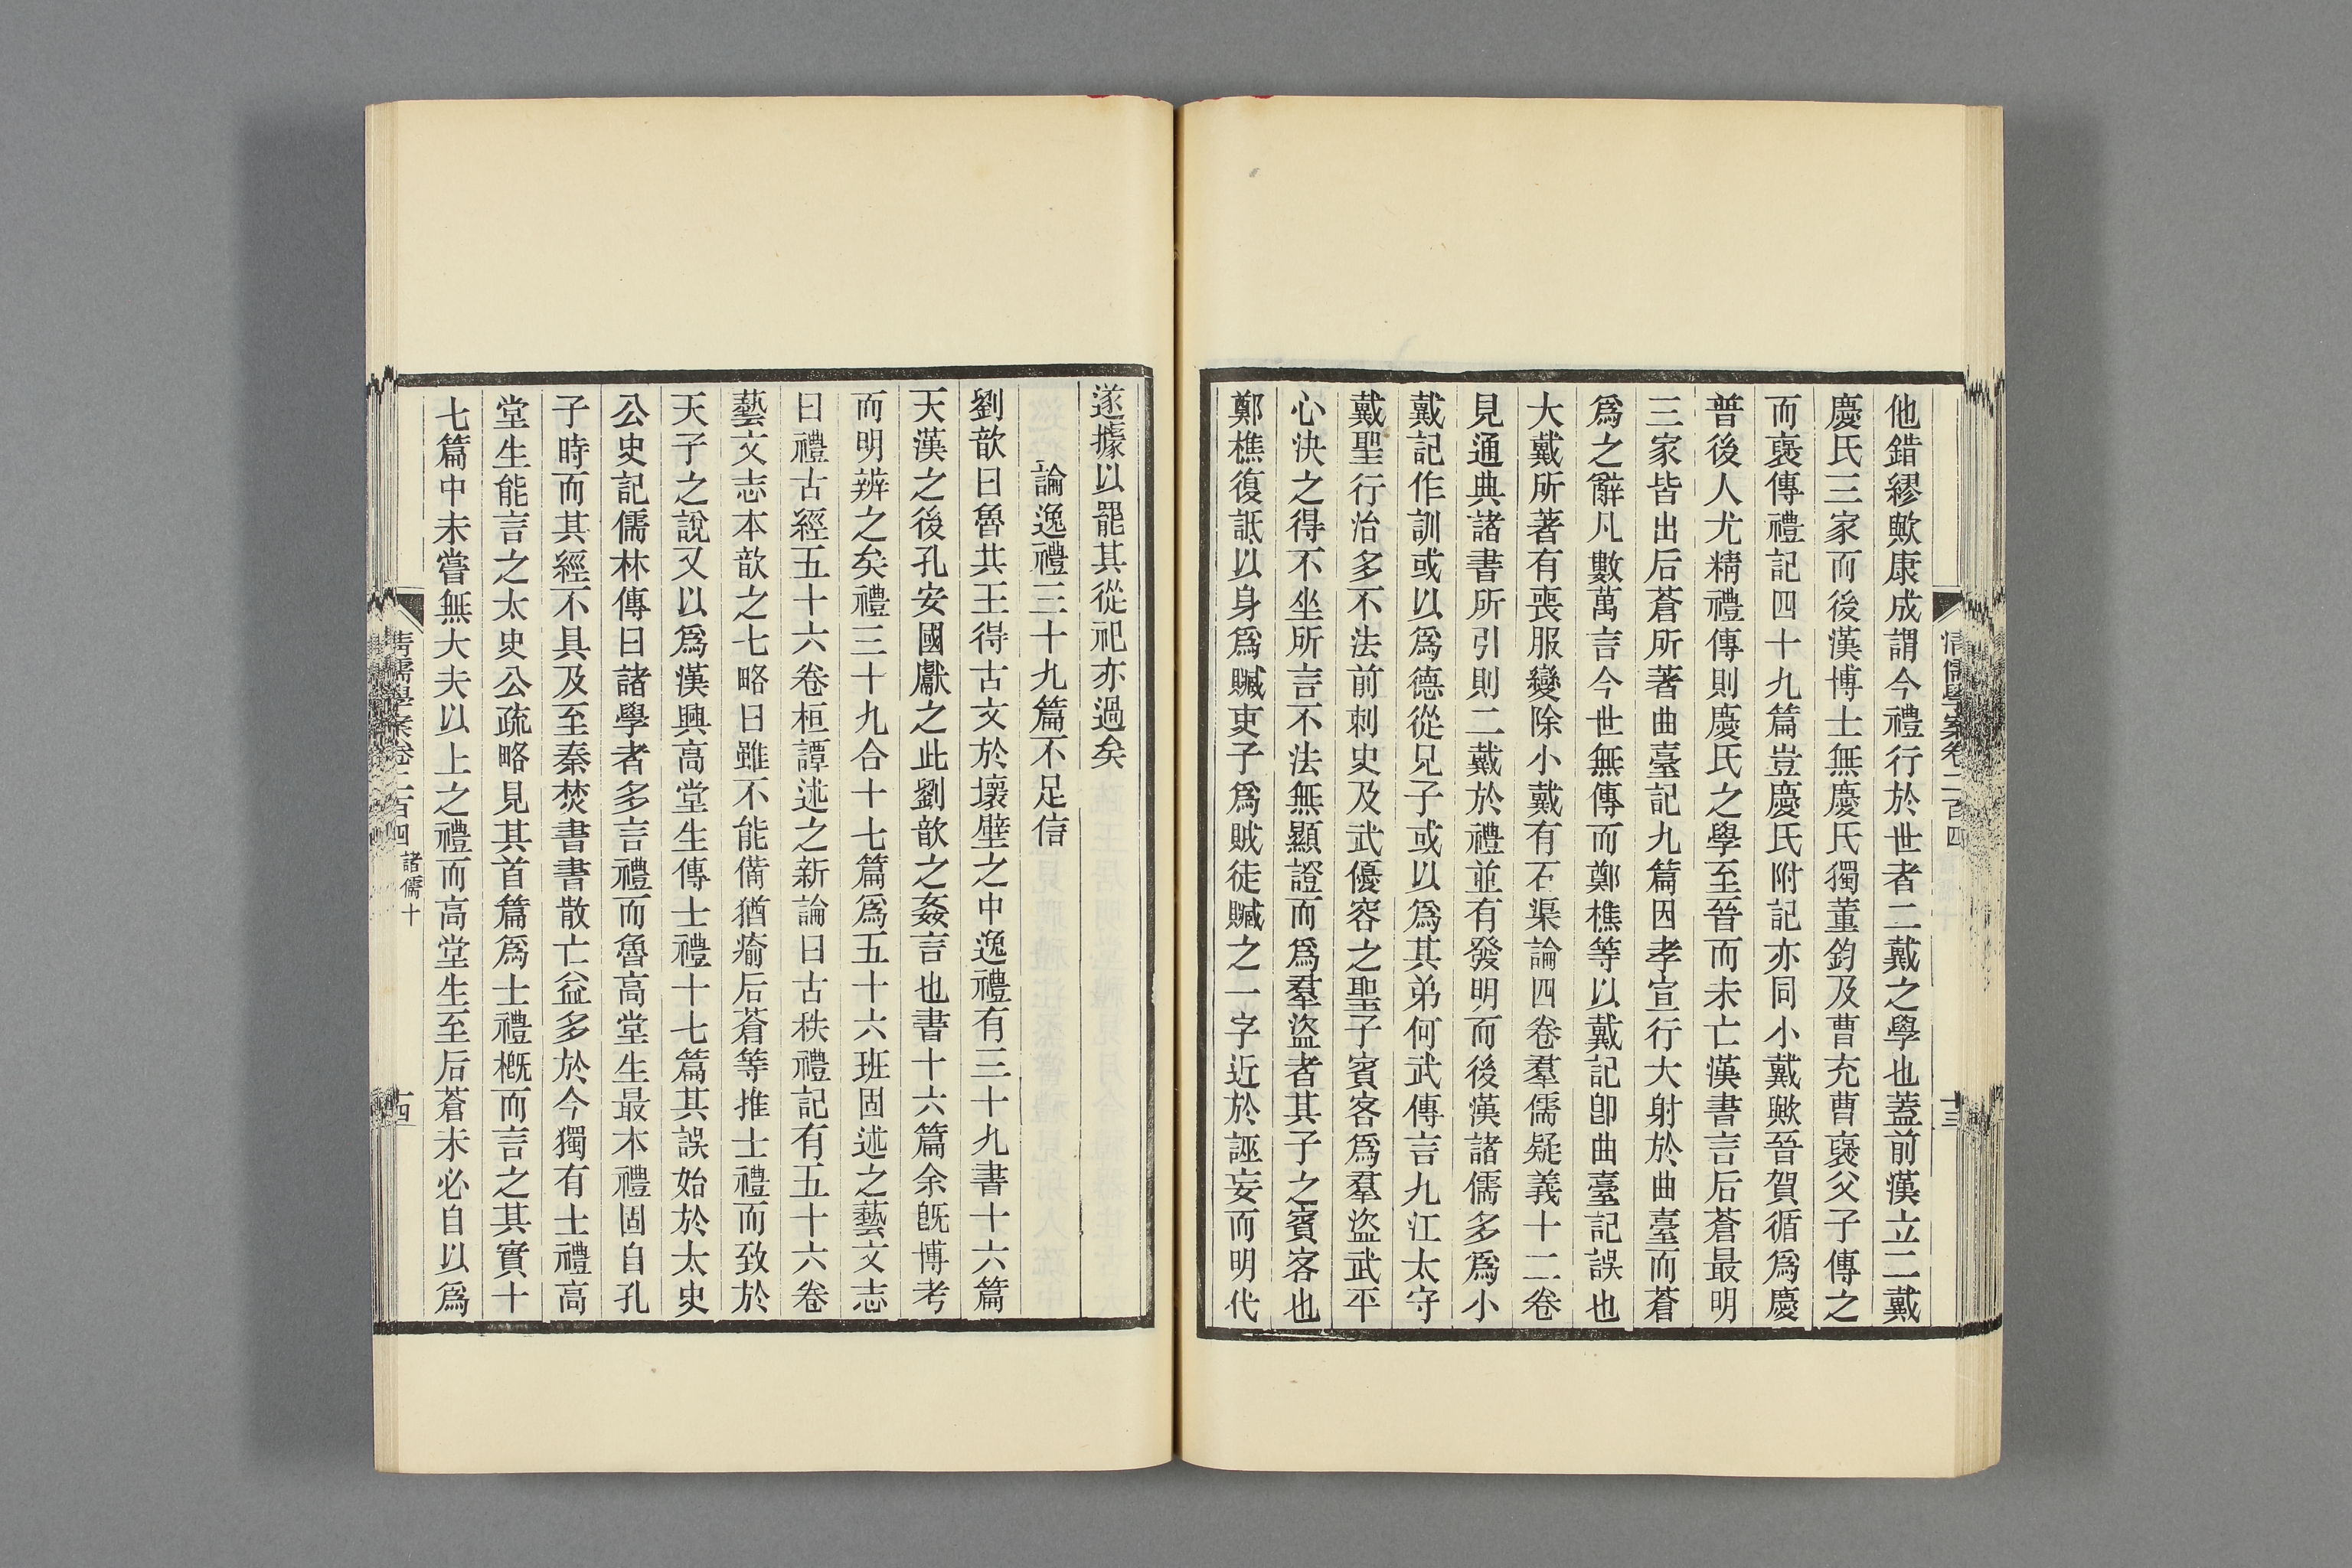 他錯繆歟康成謂今禮行於世者二戴之學也蓋前漢立二戴
慶氏三家而後漢博士無慶氏獨董鈞及曹充曹襃父子傳之
而襃傳禮記四十九篇豈慶氏附記亦同小戴歟晉賀循爲慶
普後人尤精禮傳則慶氏之學至晉而未亡漢書言后蒼最明
三家皆出后蒼所著曲臺記九篇因孝宣行大射於曲臺而蒼
爲之辭凡數萬言今世無傳而鄭樵等以戴記卽曲臺記誤也
大戴所著有喪服變除小戴有石渠論四卷羣儒疑義十二卷
見通典諸書所引則二戴於禮並有發明而後漢諸儒多爲小
戴記作訓或以爲德從兄子或以爲其弟何武傳言九江太守
戴聖行治多不法前刺史及武優容之聖子賓客爲羣盜武平
心決之得不坐所言不法無顯證而爲羣盜者其子之賓客也
鄭樵復詆以身爲贓吏子爲賊徒贓之一字近於誣妄而明代
清儒學案卷二百四
十三
遂據以罷其從祀亦過矣
論逸禮三十九篇不足信
劉歆曰魯共王得古文於壞壁之中逸禮有三十九書十六篇
天漢之後孔安國獻之此劉歆之姦言也書十六篇余旣博考
而明辨之矣禮三十九合十七篇爲五十六班固述之藝文志
曰禮古經五十六卷桓譚述之新論曰古秩禮記有五十六卷
藝文志本歆之七略曰雖不能備猶瘉后蒼等推士禮而致於
天子之說又以爲漢興高堂生傳士禮十七篇其誤始於太史
公史記儒林傳曰諸學者多言禮而魯高堂生最本禮固自孔
子時而其經不具及至秦焚書書散亡益多於今獨有士禮高
堂生能言之太史公疏略見其首篇爲士禮槪而言之其實十
七篇中未嘗無大夫以上之禮而高堂生至后蒼未必自以爲
清儒學案卷二百四 諸儒十
十四